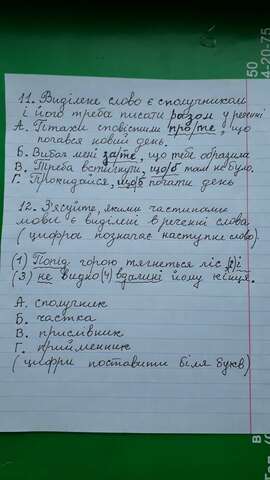 11. Виділене слово є сполучником
і його треба писати разом у реченні
А. Птахи сповістили про/те, що
почався новий день.
Б. Вибач мені за/те, що тебе образила
В. Треба встигнути, що/б там не було.
Г. Прокидайся, що/б почати день
12. З'ясуйте, якими частинами
мови є виділені в реченні слова.
(цифра позначає наступне слово).
(1) Попід горою тягнеться ліс (2) і
(3) не видко (4) вдалині йому кінця.
А. сполучник
Б. частка
В. прислівник
Г. прийменник
(цифри поставити біля букв)
50
4-20.75